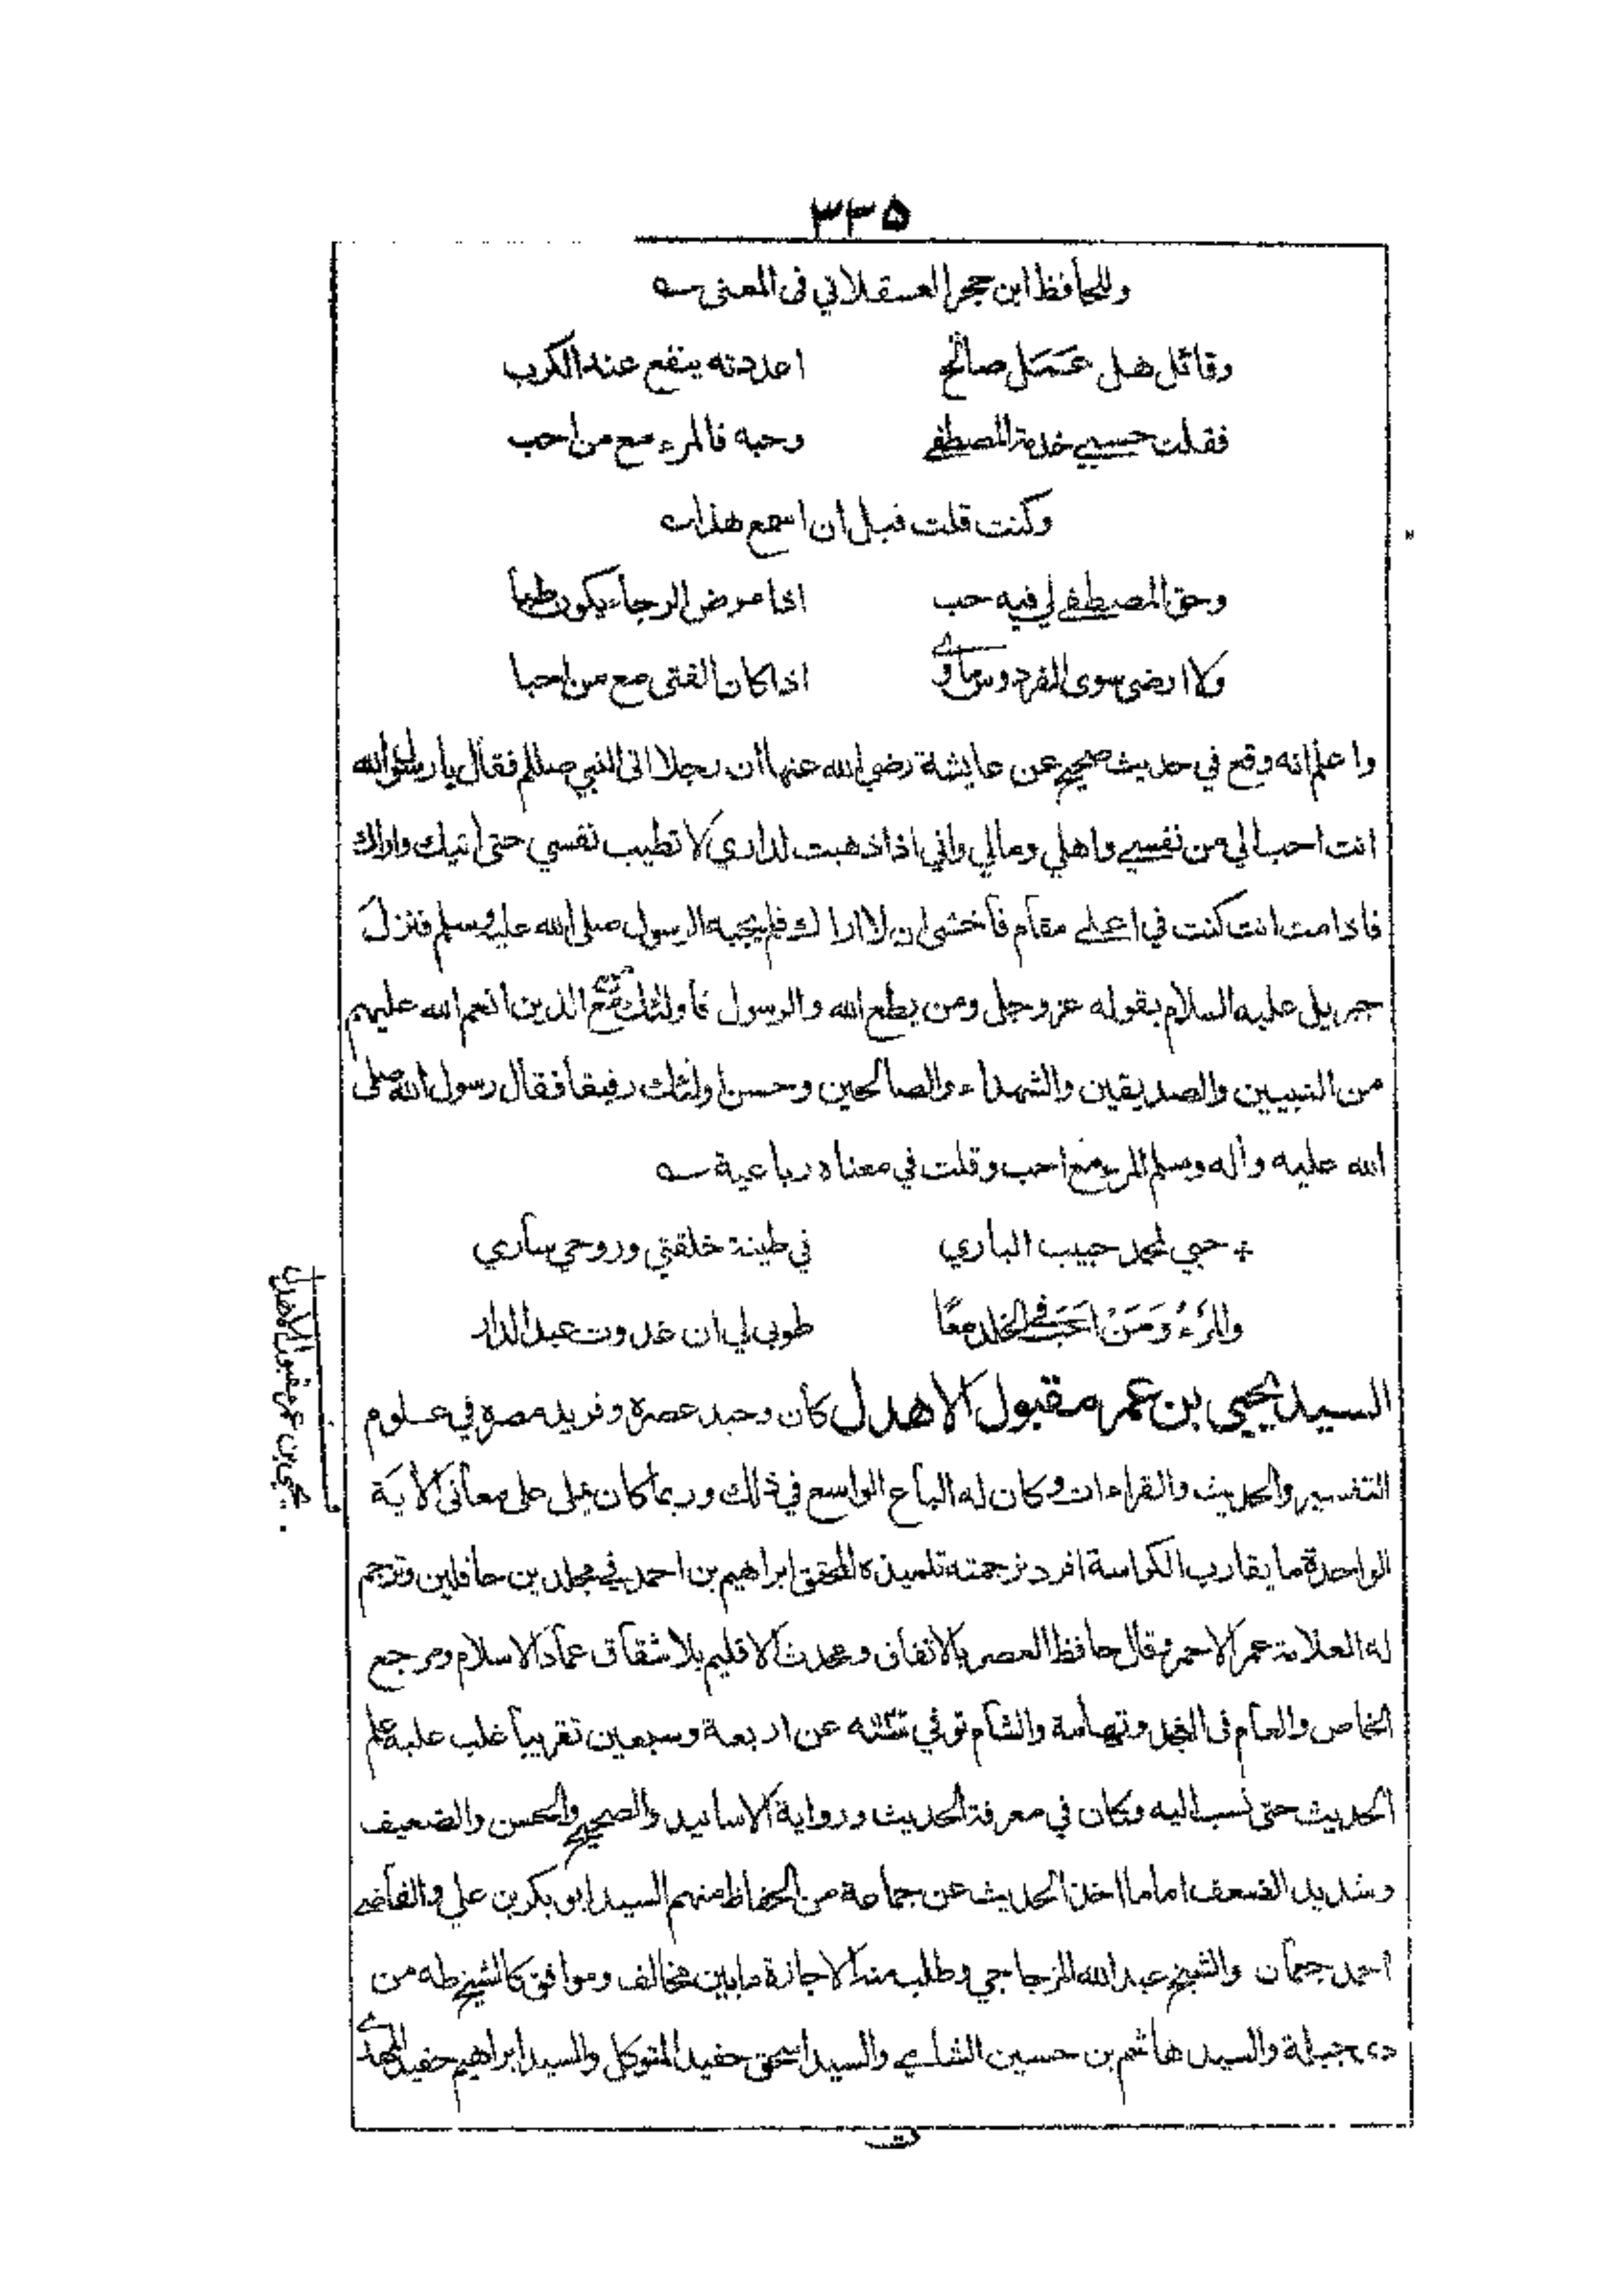 ٣٣٥
وللحافظ ابن حجر العسقلاني في المعنى
وقائل هل عَمَل صالح اعددته ينفع عند الكرب
فقلت حسبي خدمة المصطفى وحبه فالمرء مع من احب
وكنت قلت قبل ان اسمع هذا
وحق المصطفى لي فيه حب اذا مرض الرجاء يكون طبا
ولا ارضى سوى الفردوس مأوى اذا كان الفتى مع من احبا
واعلم انه وقع في حديث صحيح عن عايشة رضي الله عنها ان رجلا اتى النبي صللم فقال يا رسول الله
انت احب الي من نفسي واهلي ومالي واني اذا ذهبت لداري لا تطيب نفسي حتى اتيك واراك
فاذا مت انت كنت في اعلى مقام فاخشى ان لا اراك فلم يجبه الرسول صلى الله عليه وسلم فنزل
جبريل عليه السلام بقوله عز وجل ومن يطع الله والرسول فاولئك مع الذين انعم الله عليهم
من النبيين والصديقين والشهداء والصالحين وحسن اولئك رفيقا فقال رسول الله صلى
الله عليه وآله وسلم المرء مع احب وقلت في معناه رباعية
حبي لمحمد حبيب الباري في طينة خلقتي وروحي ساري
والمَرْءُ وَمَنْ اَحَبَّ في الخلد معًا طوبى لي ان غدوت عبد الدار
السيد يحيى بن عمر مقبول الاهدل كان وحيد عصره وفريد مصره في علوم
التفسير والحديث والقراءات وكان له الباع الواسع في ذلك وربما كان يملي على معاني الآية
الواحدة ما يقارب الكراسة افرد ترجمته تلميذه المحقق ابراهيم بن احمد في مجلدين حافلين وترجم
له العلامة عمر الاحمر وقال حافظ العصر بالاتفاق ومحدث الاقليم بلا شقاق عماد الاسلام ومرجع
الخاص والعام في النجد وتهامة والشام توفي عن اربعة وسبعين تقريبا غلب عليه علم
الحديث حتى نسب اليه وكان في معرفة الحديث ورواية الاسانيد والصحيح والحسن والضعيف
وشديد الضعف اماما اخذ الحديث عن جماعة من الحفاظ منهم السيد ابو بكر بن علي والقاضي
احمد جمعان والشيخ عبد الله المزجاجي وطلب منه الاجازة ما بين مخالف وموافق كالشيخ طه من
ذي جبلة والسيد هاشم بن حسين الشامي والسيد اسحق حفيد المتوكل والسيد ابراهيم حفيد المهدي
يحيى بن عمر مقبول الاهدل